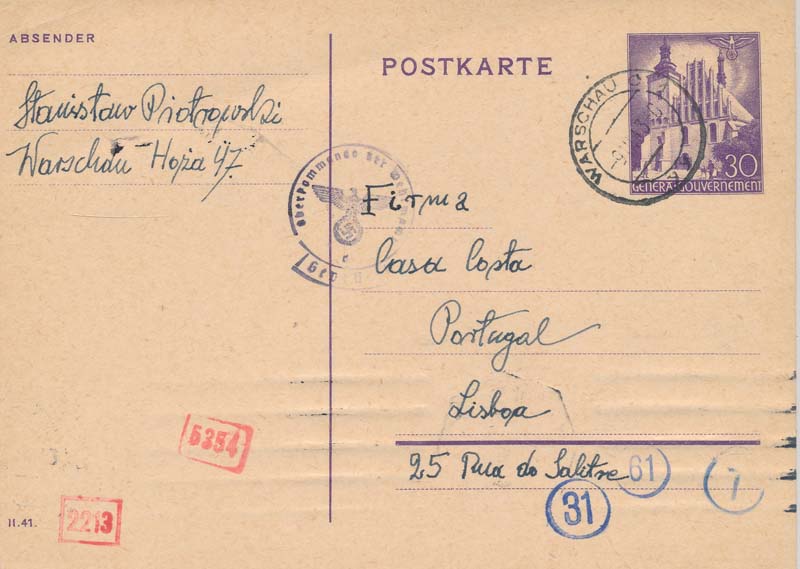 ABSENDER
Stanisław Piotrowski
Warschau Hoża 47.
POSTKARTE
WARSCHAU
30
GENERALGOUVERNEMENT
Oberkommando der Wehrmacht
Geprüft
e
Firma
Casa Costa
Portugal
Lisboa
25 Rua do Salitre
5354
2213
II.41.
31
61
7